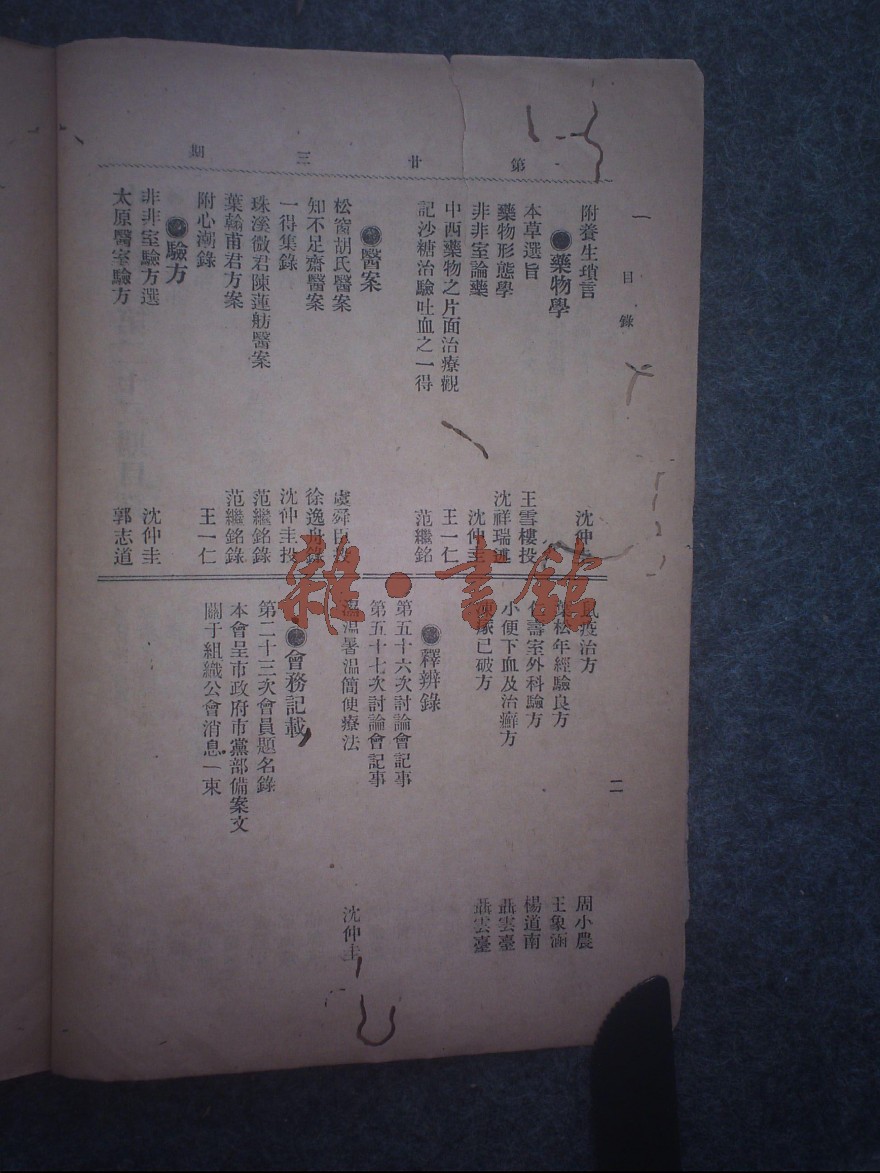 第廿三期
一 目錄 二
附養生瑣言 沈仲圭
●藥物學
本草選旨 王雪樓投
藥物形態學 沈祥瑞述
非非室論藥 沈仲圭
中西藥物之片面治療觀 王一仁
記沙糖治驗吐血之一得 范繼銘
●醫案
松窗胡氏醫案 虞舜臣投
知不足齋醫案 徐逸舟錄
一得集錄 沈仲圭投
珠溪徵君陳蓮舫醫案 范繼銘錄
葉翰甫君方案 范繼銘錄
附心潮錄 王一仁
●驗方
非非室驗方選 沈仲圭
太原醫室驗方 郭志道
疫治方 周小農
松年經驗良方 王象涵
壽室外科驗方 楊道南
小便下血及治癬方 聶雲臺
瘃已破方 聶雲臺
●釋辨錄
第五十六次討論會記事
第五十七次討論會記事
溫暑溫簡便療法 沈仲圭
●會務記載
第二十三次會員題名錄
本會呈市政府市黨部備案文
關于組織公會消息一束
雜·書館